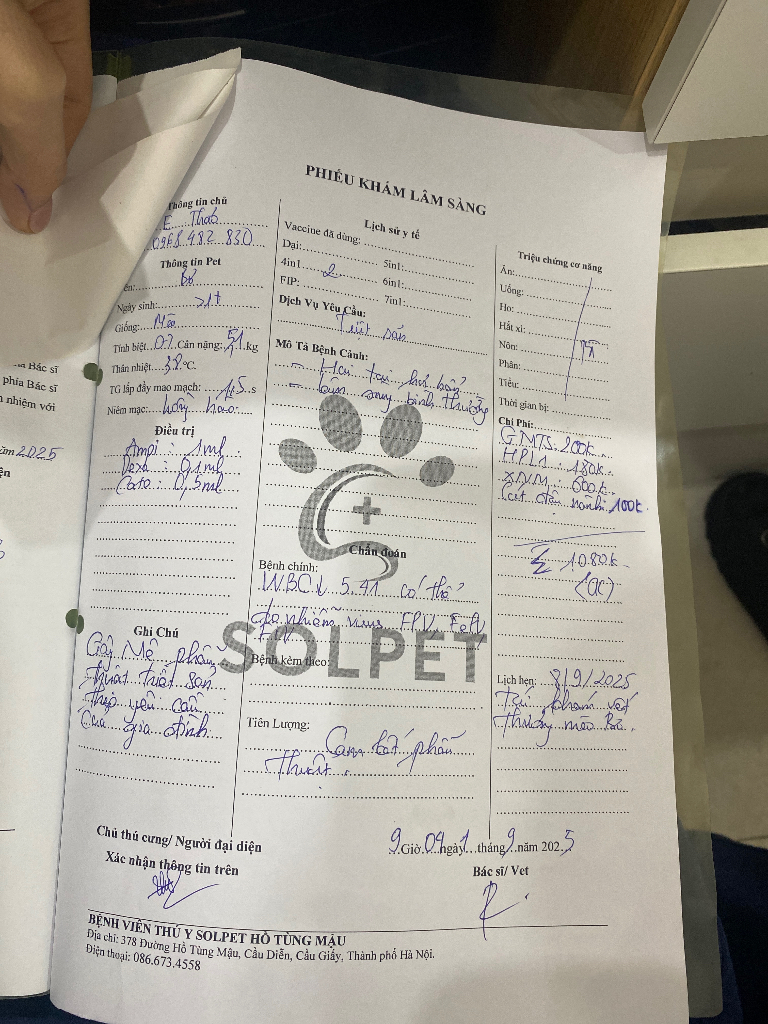 PHIẾU KHÁM LÂM SÀNG
Thông tin chủ
E Thảo
0968 482 830
Thông tin Pet
ên: Bơ
Ngày sinh: >1t
Giống: Mèo
Tính biệt Cân nặng: 5,1 kg
Thân nhiệt 38 °C.
TG lấp đầy mao mạch: 1,5 s
Niêm mạc: hồng hào
Điều trị
Ampi : 1ml
Dexa : 0,1ml
Cato : 0,5ml
Ghi Chú
Gây Mê phẫu
thuật triệt sản
theo yêu cầu
Của gia đình
Lịch sử y tế
Vaccine đã dùng:
Dại: 5in1:
4in1 2 6in1:
FIP: 7in1:
Dịch Vụ Yêu Cầu:
Triệt sản
Mô Tả Bệnh Cảnh:
- Hai tai hơi bẩn
- bình thường
Chẩn đoán
Bệnh chính:
WBC↓ 5.41 có thể
do nhiễm virus FPV, FeLV
FIV
SOLPET
Bệnh kèm theo:
Tiên Lượng:
Cam kết phẫu
thuật.
Triệu chứng cơ năng
Ăn:
Uống:
Ho:
Hắt xì:
Nôn:
Phân:
Tiểu:
Thời gian bị:
Chi Phí:
GMTS 200k
180k
XNM: 600k
100k
Σ 1080k
(CK)
Lịch hẹn: 8/9/2025
Tái khám vết
thương mèo Bơ.
Chủ thú cưng/ Người đại diện
Xác nhận thông tin trên
9 Giờ 09 ngày 1 tháng 9 năm 2025
Bác sĩ/ Vet
BỆNH VIỆN THÚ Y SOLPET HỒ TÙNG MẬU
Địa chỉ: 378 Đường Hồ Tùng Mậu, Cầu Diễn, Cầu Giấy, Thành phố Hà Nội.
Điện thoại: 086.673.4558
Bác sĩ
phía Bác sĩ
nhiệm với
ăm 2025
ện